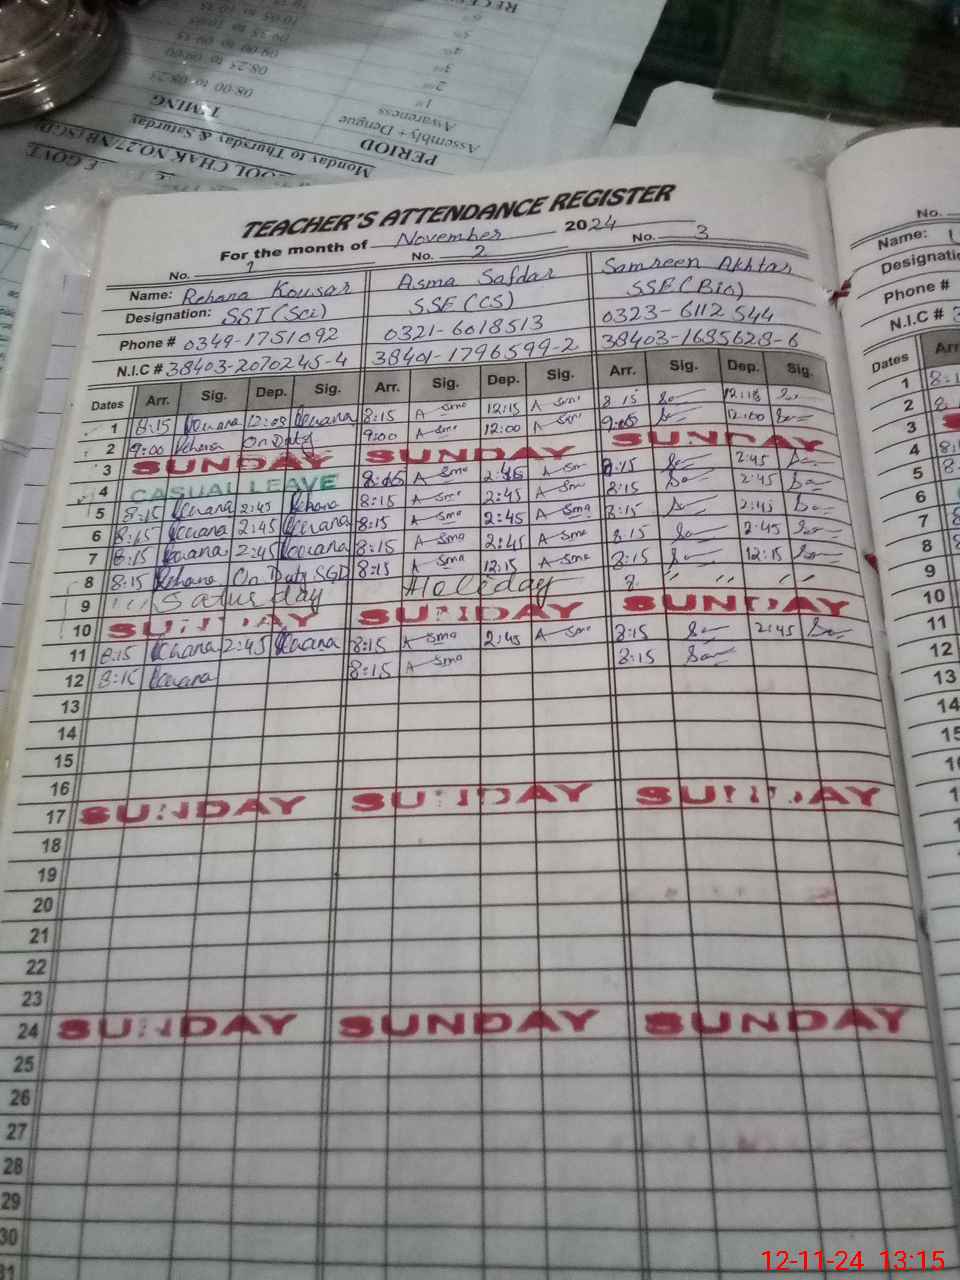 RECE
6th
5th
4th
3rd
2nd
1st
10:05 to
09:35 to 10:05
09:00 to 09:35
08:25 to 09:00
08:00 to 08:25
Assembly + Dengue
Awareness
PERIOD
TIMING
Monday to Thursday & Saturday
OOL CHAK NO.27/NB (SGD
GOVT
TEACHER'S ATTENDANCE REGISTER
For the month of November 2024
No. 1 No. 2 No. 3
Name: Rehana Kousar Asma Safdar Samreen Akhtar
Designation: SST (Sci) SSE (CS) SSE (Bio)
Phone # 0349-1751092 0321-6018513 0323-6112544
N.I.C # 38403-2070245-4 38401-1796599-2 38403-1695628-6
Dates Arr. Sig. Dep. Sig. Arr. Sig. Dep. Sig. Arr. Sig. Dep. Sig.
1 8:15 Rehana 12:08 Rehana 8:15 Asma 12:15 Asma 8:15 12:18
2 9:00 Rehana On Duty 9:00 Asma 12:00 Asma 9:00 12:00
3 SUNDAY SUNDAY SUNDAY
4 CASUAL LEAVE 8:15 Asma 2:45 Asma 8:15 2:45
5 8:15 Rehana 2:45 Rehana 8:15 Asma 2:45 Asma 8:15 2:45
6 8:15 Rehana 2:45 Rehana 8:15 Asma 2:45 Asma 8:15 2:45
7 8:15 Rehana 2:45 Rehana 8:15 Asma 2:45 Asma 8:15 2:45
8 8:15 Rehana On Duty SGD 8:15 Asma 12:15 Asma 8:15 12:15
9 Saturday Holiday
10 SUNDAY SUNDAY SUNDAY
11 8:15 Rehana 2:45 Rehana 8:15 Asma 2:45 Asma 8:15 2:45
12 8:15 Rehana 8:15 Asma 8:15
13
14
15
16
17 SUNDAY SUNDAY SUNDAY
18
19
20
21
22
23
24 SUNDAY SUNDAY SUNDAY
25
26
27
28
29
30
31
No.
Name:
Designatio
Phone #
N.I.C # 3
Dates Arr
1 8:1
2
3
4
5
6
7
8
9
10
11
12
13
14
12-11-24 13:15